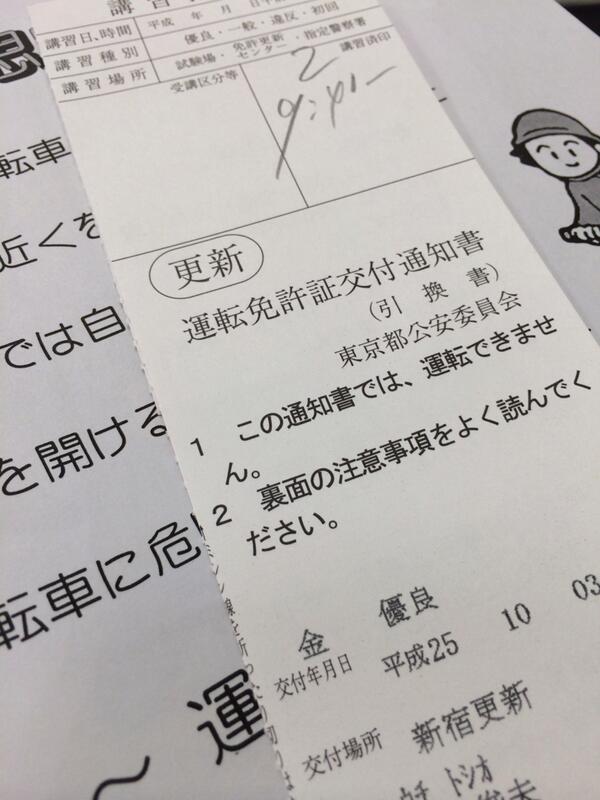 講習日、時間 平成 年 月
講習種別 優良・一般・違反・初回
講習場所 試験場・免許更新センター・指定警察署
受講区分等 講習済印
2
9:40~
更新
運転免許証交付通知書
(引換書)
東京都公安委員会
1 この通知書では、運転できませ
ん。
2 裏面の注意事項をよく読んでく
ださい。
金 優良
交付年月日 平成25 10 03
交付場所 新宿更新
トシオ
転車
近くを
では自
を開ける
転車に危
~ 運